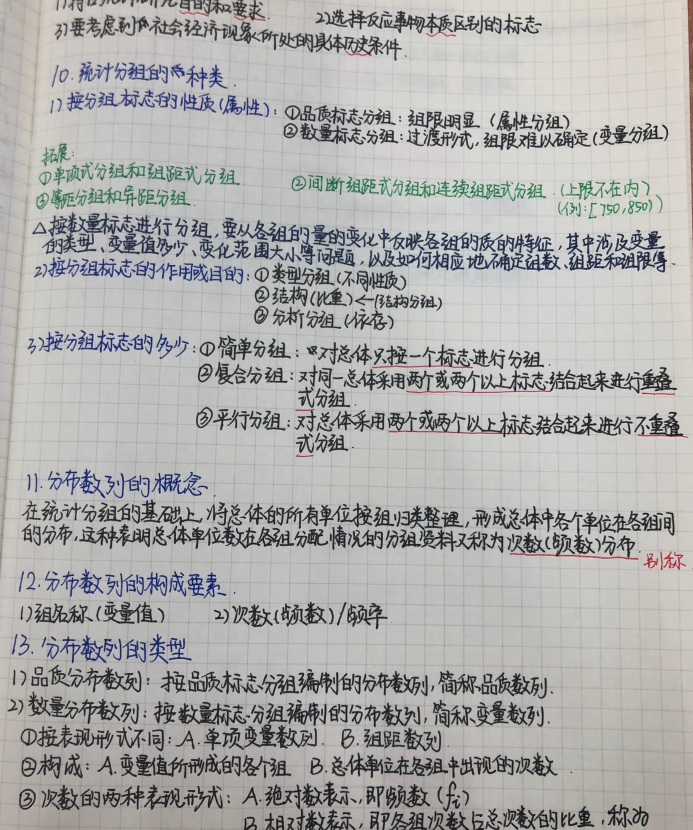 目的和要求 2)选择反应事物本质区别的标志
3)要考虑到社会经济现象所处的具体历史条件.
10.统计分组的种类
1)按分组标志的性质(属性):①品质标志分组:组限明显(属性分组)
②数量标志分组:过渡形式,组限难以确定(变量分组)
拓展:
①单项式分组和组距式分组 ②间断组距式分组和连续组距式分组.(上限不在内)
③等距分组和异距分组. (例:[750,850))
△按数量标志进行分组,要从各组的量的变化中反映各组的质的特征,其中涉及变量
的类型、变量值多少、变化范围大小等问题,以及如何相应地确定组数、组距和组限等.
2)按分组标志的作用或目的:①类型分组(不同性质)
②结构(比重)←(结构分组)
③分析分组(依存)
3)按分组标志的多少:①简单分组:对总体只按一个标志进行分组.
②复合分组:对同一总体采用两个或两个以上标志结合起来进行重叠
式分组.
③平行分组:对总体采用两个或两个以上标志结合起来进行不重叠
式分组.
11.分布数列的概念
在统计分组的基础上,将总体的所有单位按组归类整理,形成总体中各个单位在各组间
的分布,这种表明总体单位数在各组分配情况的分组资料又称为次数(频数)分布.
别称
12.分布数列的构成要素
1)组名称(变量值) 2)次数(频数)/频率
13.分布数列的类型
1)品质分布数列:按品质标志分组编制的分布数列,简称品质数列.
2)数量分布数列:按数量标志分组编制的分布数列,简称变量数列.
①按表现形式不同:A.单项变量数列. B.组距数列.
②构成:A.变量值所形成的各个组 B.总体单位在各组中出现的次数.
③次数的两种表现形式:A.绝对数表示,即频数(fi)
B.相对数表示,即各组次数占总次数的比重,称为